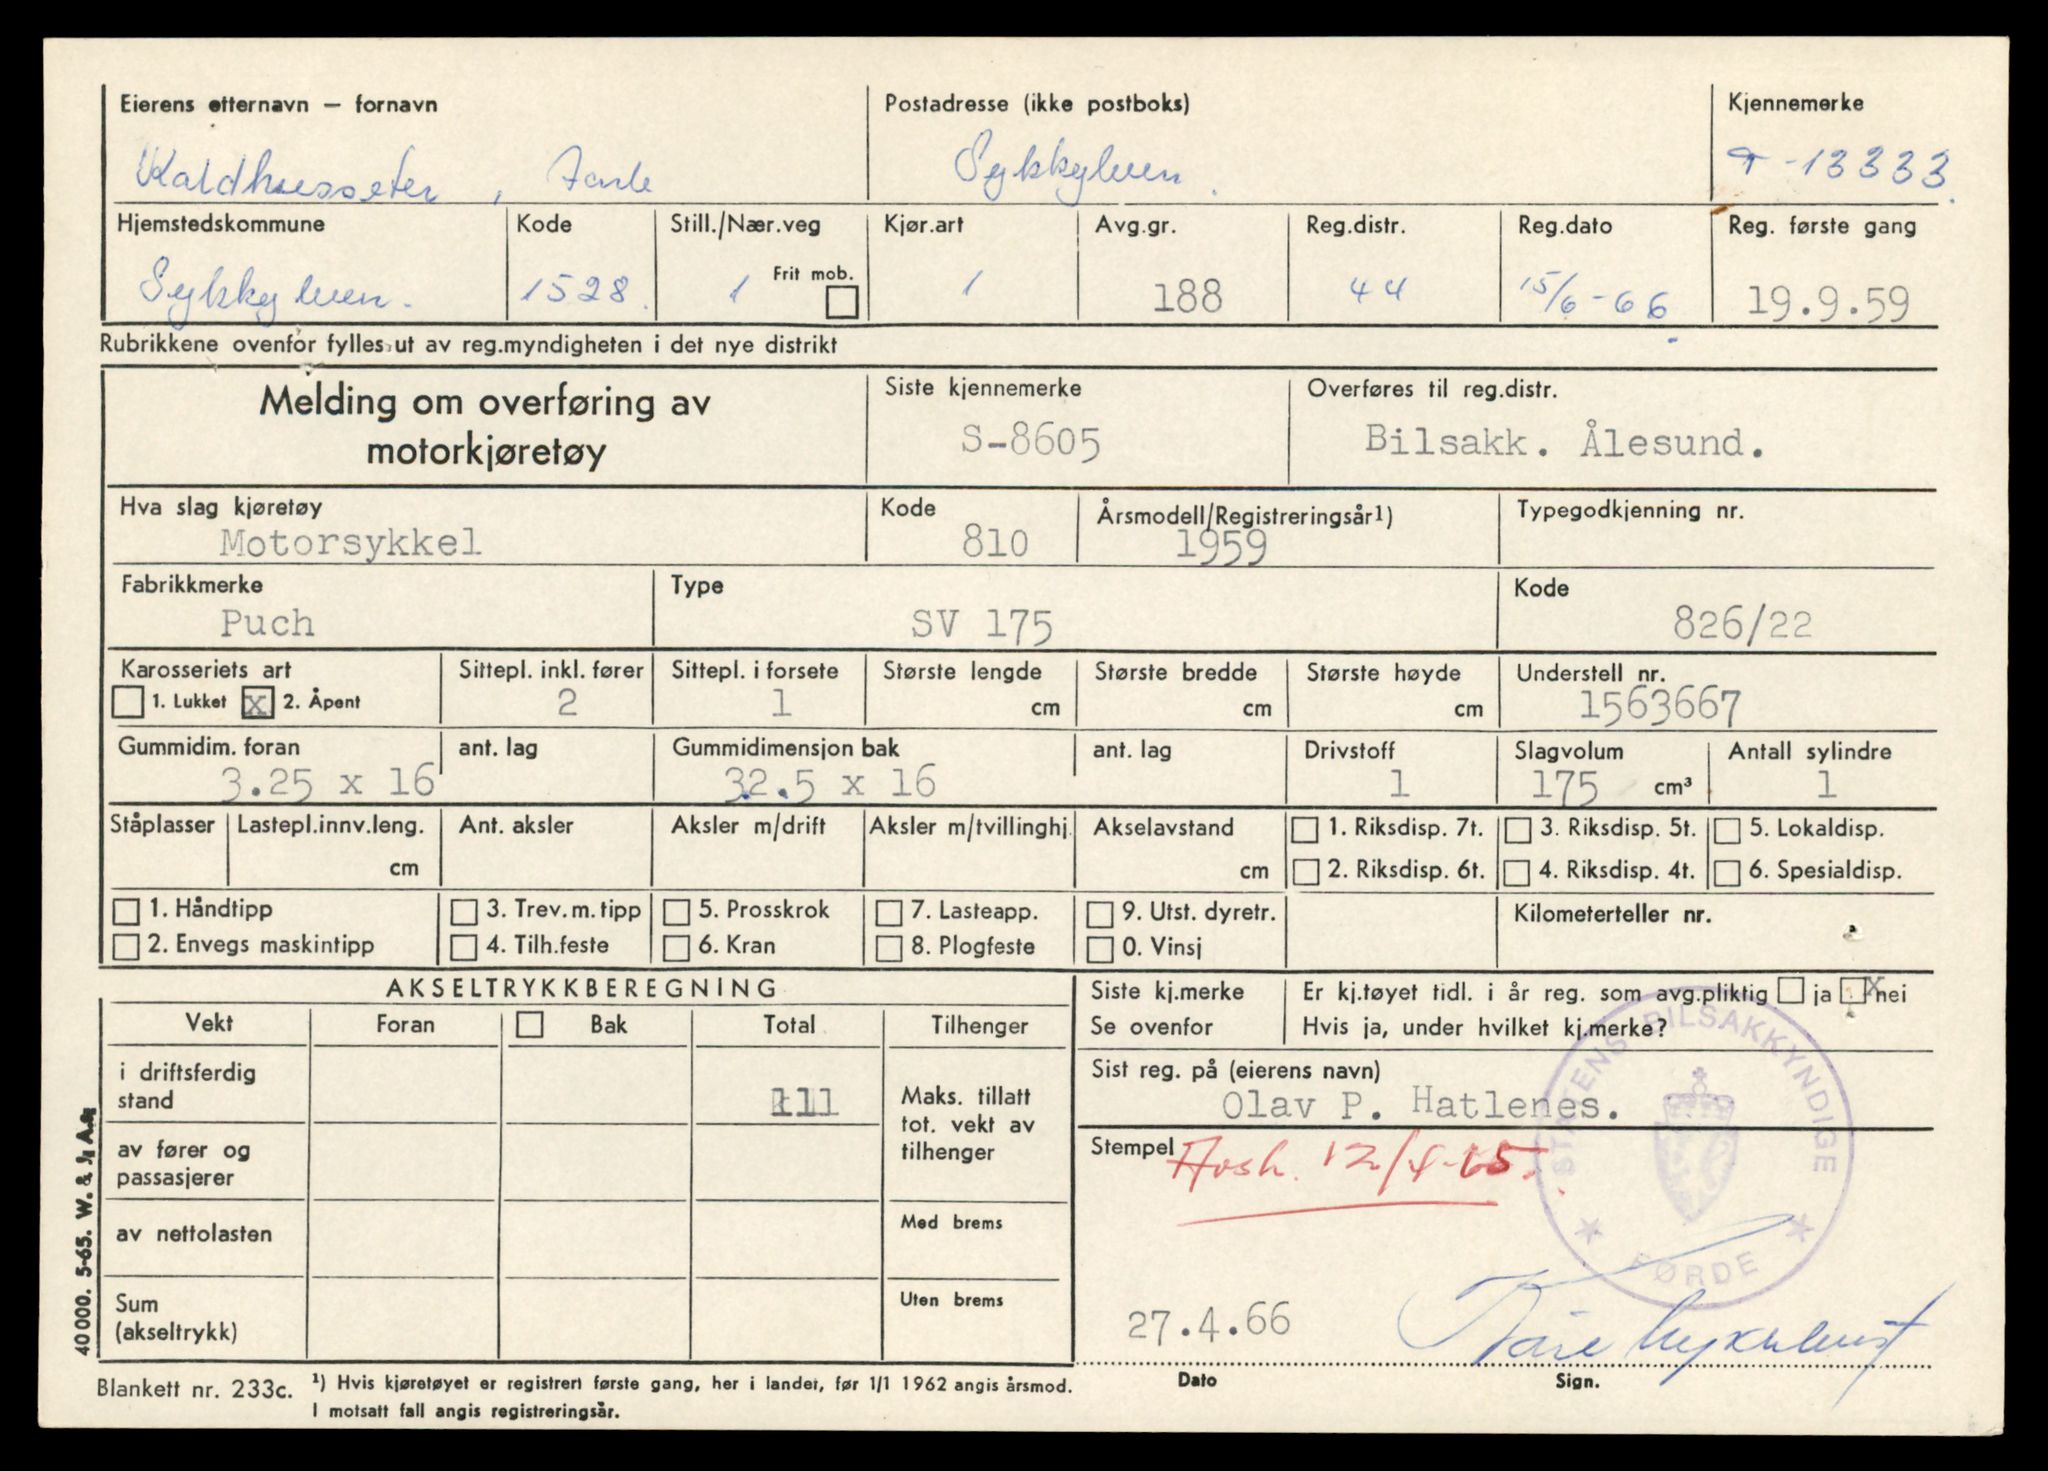 Eierens etternavn — fornavn
Kaldhusseter,
Postadresse (ikke postboks)
Sykkylven.
Kjennemerke
T-13333.
Hjemstedskommune
Sykkylven.
Kode
1528.
Still./Nær.veg
1
Frit mob.
Kjør.art
1
Avg.gr.
188
Reg.distr.
44
Reg.dato
15/6-66.
Reg. første gang
19.9.59
Rubrikkene ovenfor fylles ut av reg.myndigheten i det nye distrikt
Melding om overføring av
motorkjøretøy
Siste kjennemerke
S-8605
Overføres til reg.distr.
Bilsakk. Ålesund.
Hva slag kjøretøy
Motorsykkel
Kode
810
Årsmodell/Registreringsår1)
1959
Typegodkjenning nr.
Fabrikkmerke
Puch
Type
SV 175
Kode
826/22
Karosseriets art
1. Lukket x 2. Åpent
Sittepl. inkl. fører
2
Sittepl. i forsete
1
Største lengde
cm
Største bredde
cm
Største høyde
cm
Understell nr.
1563667
Gummidim. foran
3.25 x 16
ant. lag
Gummidimensjon bak
32.5 x 16
ant. lag
Drivstoff
1
Slagvolum
175 cm³
Antall sylindre
1
Ståplasser
Lastepl.innv.leng.
cm
Ant. aksler
Aksler m/drift
Aksler m/tvillinghj.
Akselavstand
cm
1. Riksdisp. 7t.
2. Riksdisp. 6t.
3. Riksdisp. 5t.
4. Riksdisp. 4t.
5. Lokaldisp.
6. Spesialdisp.
1. Håndtipp
2. Envegs maskintipp
3. Trev.m.tipp
4. Tilh.feste
5. Prosskrok
6. Kran
7. Lasteapp.
8. Plogfeste
9. Utst. dyretr.
0. Vinsj
Kilometerteller nr.
AKSELTRYKKBEREGNING
Vekt
Foran
Bak
Total
Tilhenger
i driftsferdig
stand
111
av fører og
passasjerer
av nettolasten
Sum
(akseltrykk)
Maks. tillatt
tot. vekt av
tilhenger
Med brems
Uten brems
Siste kj.merke
Se ovenfor
Er kj.tøyet tidl. i år reg. som avg.pliktig ja x nei
Hvis ja, under hvilket kj.merke?
Sist reg. på (eierens navn)
Olav P. Hatlenes.
Stempel
Avsk. 12/4-65.
STATENS BILSAKKYNDIGE
FØRDE
27.4.66
Dato
Sign.
40 000. 5-65. W. & J. A.s
Blankett nr. 233c.
¹) Hvis kjøretøyet er registrert første gang, her i landet, før 1/1 1962 angis årsmod.
I motsatt fall angis registreringsår.